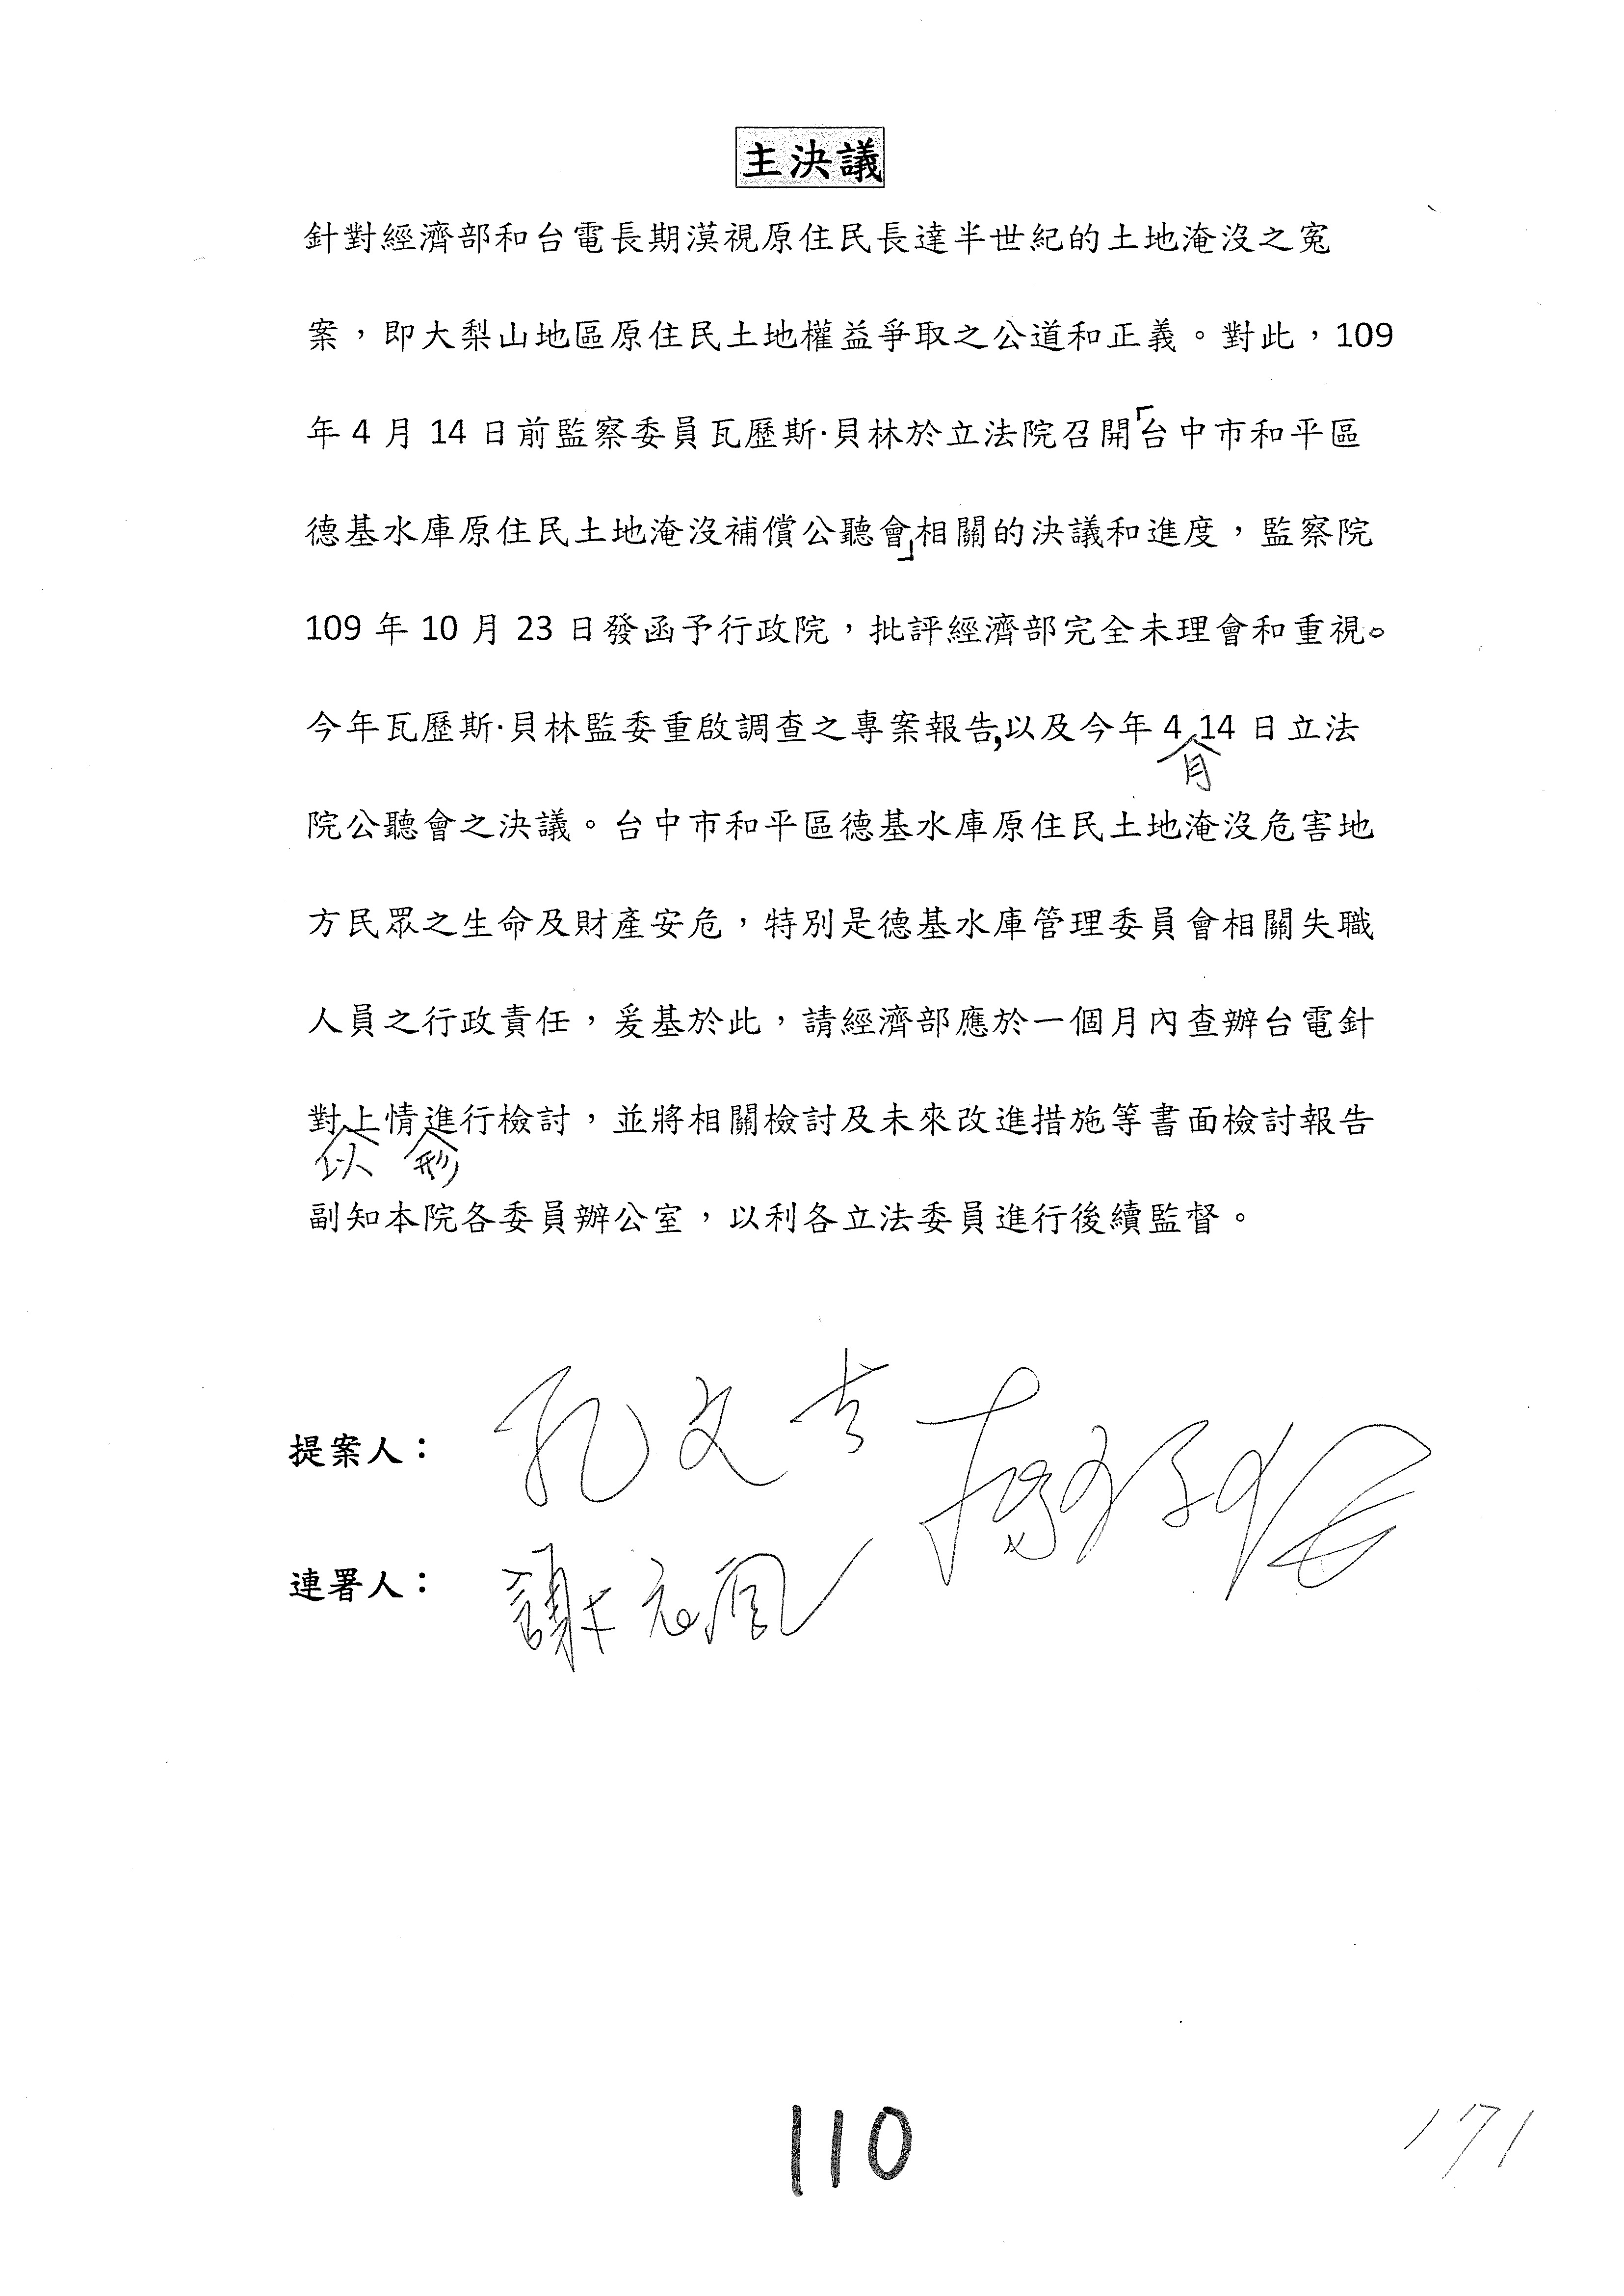 主決議
針對經濟部和台電長期漠視原住民長達半世紀的土地淹沒之冤
案，即大梨山地區原住民土地權益爭取之公道和正義。對此，109
年 4 月 14 日前監察委員瓦歷斯·貝林於立法院召開「台中市和平區
德基水庫原住民土地淹沒補償公聽會」相關的決議和進度，監察院
109 年 10 月 23 日發函予行政院，批評經濟部完全未理會和重視。
今年瓦歷斯·貝林監委重啟調查之專案報告，以及今年 4 月 14 日立法
院公聽會之決議。台中市和平區德基水庫原住民土地淹沒危害地
方民眾之生命及財產安危，特別是德基水庫管理委員會相關失職
人員之行政責任，爰基於此，請經濟部應於一個月內查辦台電針
對以上情形進行檢討，並將相關檢討及未來改進措施等書面檢討報告
副知本院各委員辦公室，以利各立法委員進行後續監督。
提案人： 孔文吉
連署人： 謝衣鳳
110
171